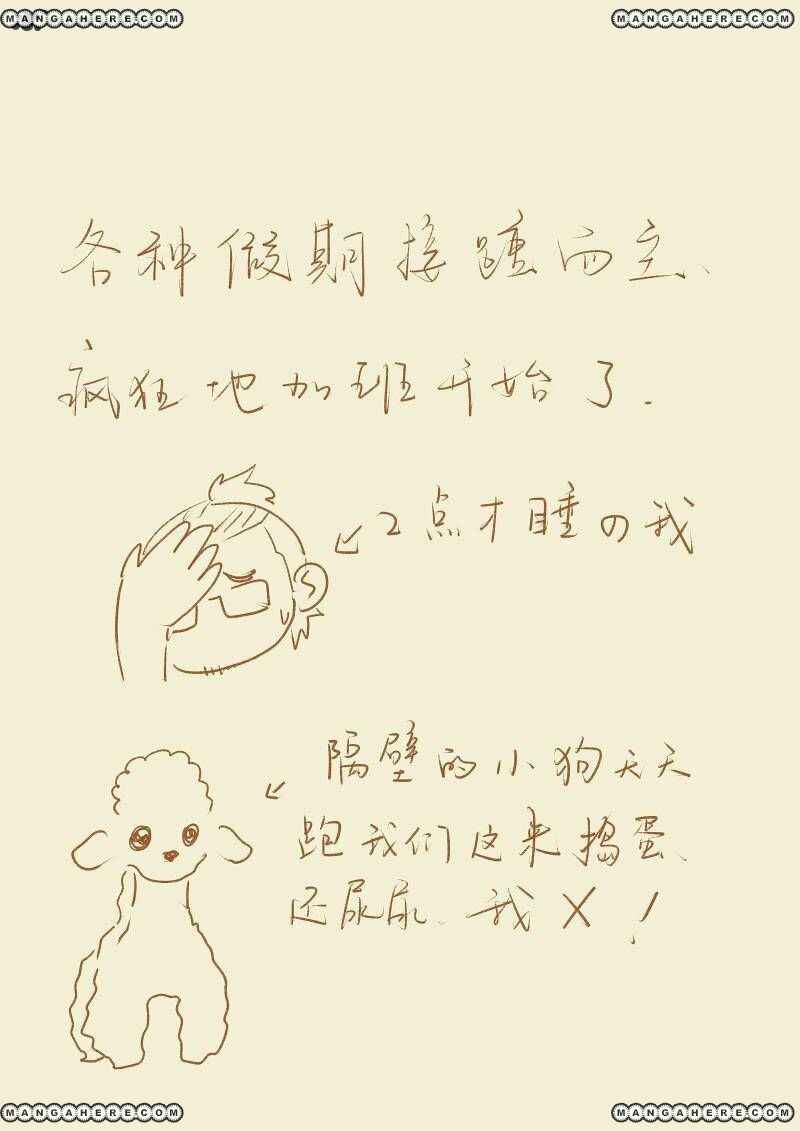 MANGAHERE.COM MANGAHERE.COM
各种假期接踵而至、
疯狂地加班开始了.
2点才睡の我
隔壁的小狗天天
跑我们这来捣蛋、
还尿尿、我X！
MANGAHERE.COM MANGAHERE.COM